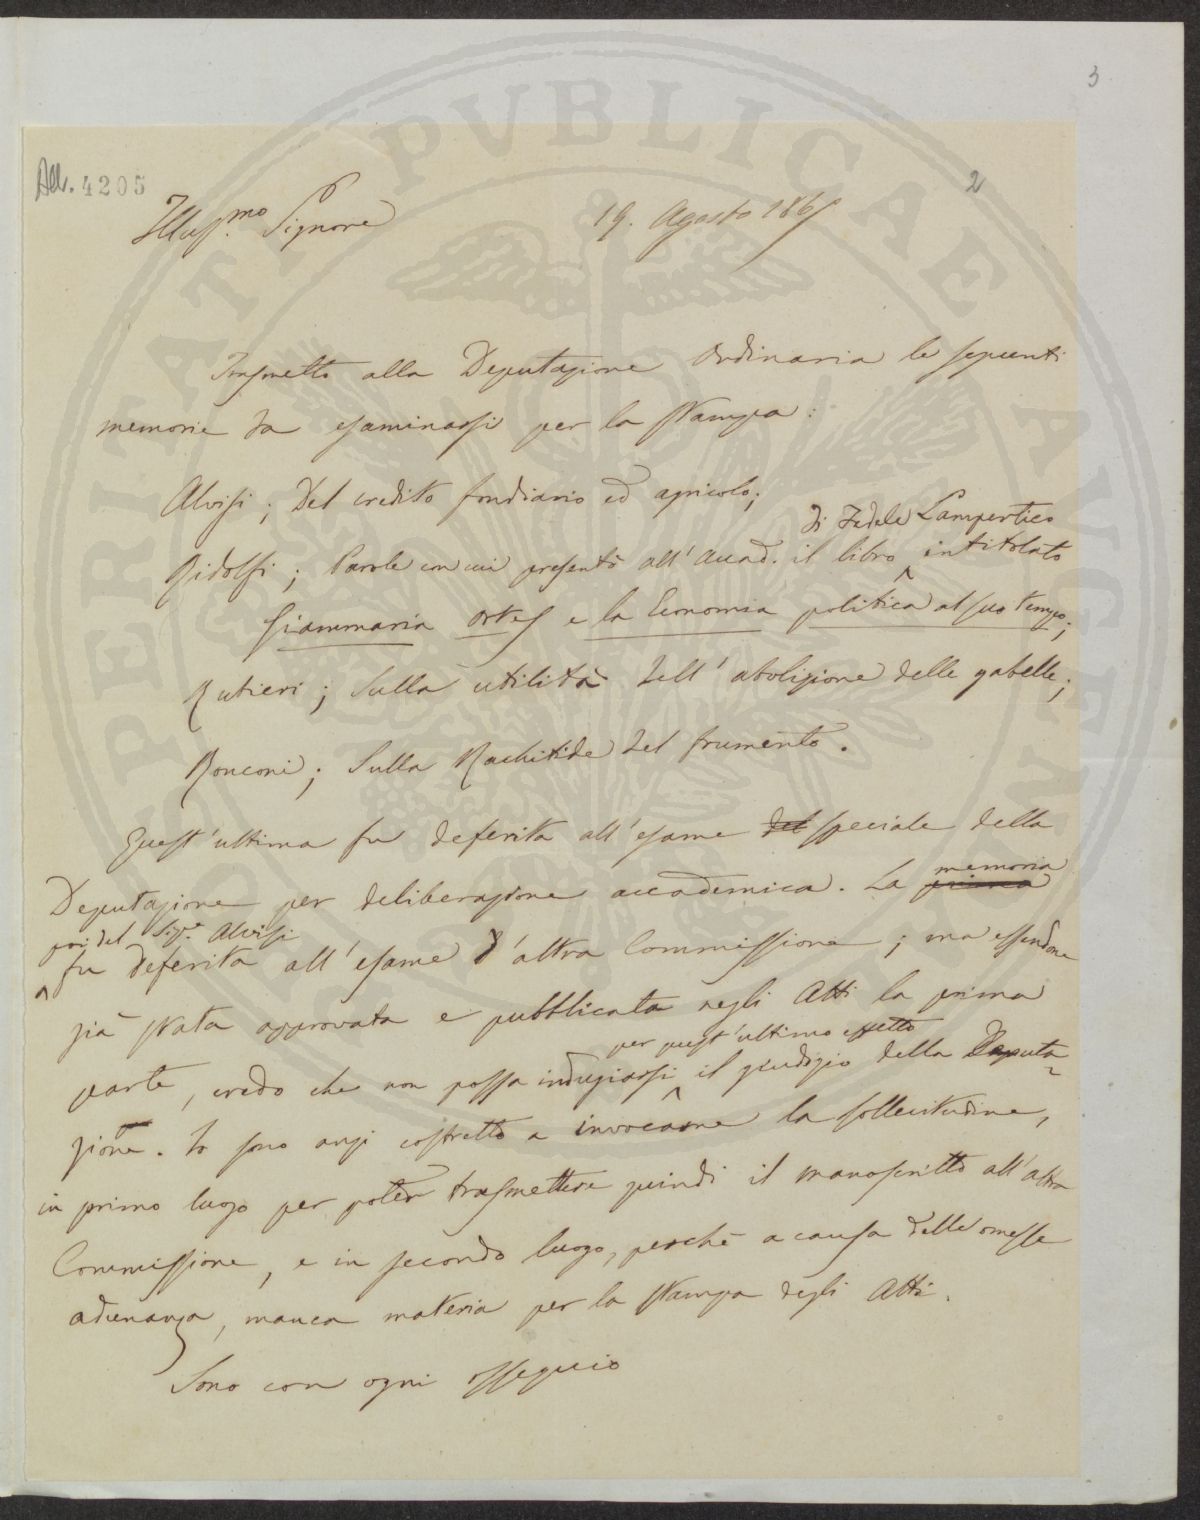 3
All. 4205
2
Illus.mo Signore
19. Agosto 186
Trasmetto alla Deputazione Ordinaria le seguenti
memorie da esaminarsi per la stampa:
Alvisi; Del credito fondiario ed agricolo;
di Fedele Lampertico
Ridolfi; Parole con cui presentò all'Accad. il libro ^ intitolato
Giammaria Ortes e la Economia politica al suo tempo;
Rubieri; Sulla utilità dell'abolizione delle gabelle;
Ronconi; Sulla Rachitide del frumento.
Quest'ultima fu deferita all'esame del speciale della
memoria
Deputazione per deliberazione accademica. La prima
poi del Sig.e Alvisi
^ fu deferita all'esame d'altra Commissione; ma essendone
già stata approvata e pubblicata negli Atti la prima
per quest'ultimo effetto
parte, credo che non possa indugiarsi ^ il giudizio della Deputa-
zione. Io sono anzi costretto a invocarne la sollecitudine,
in primo luogo per poter trasmettere quindi il manoscritto all'altra
Commissione, e in secondo luogo, perchè a causa delle omesse
adunanze, manca materia per la stampa degli Atti.
Sono con ogni ossequio
PERITATI PVBLICAE AVGEN